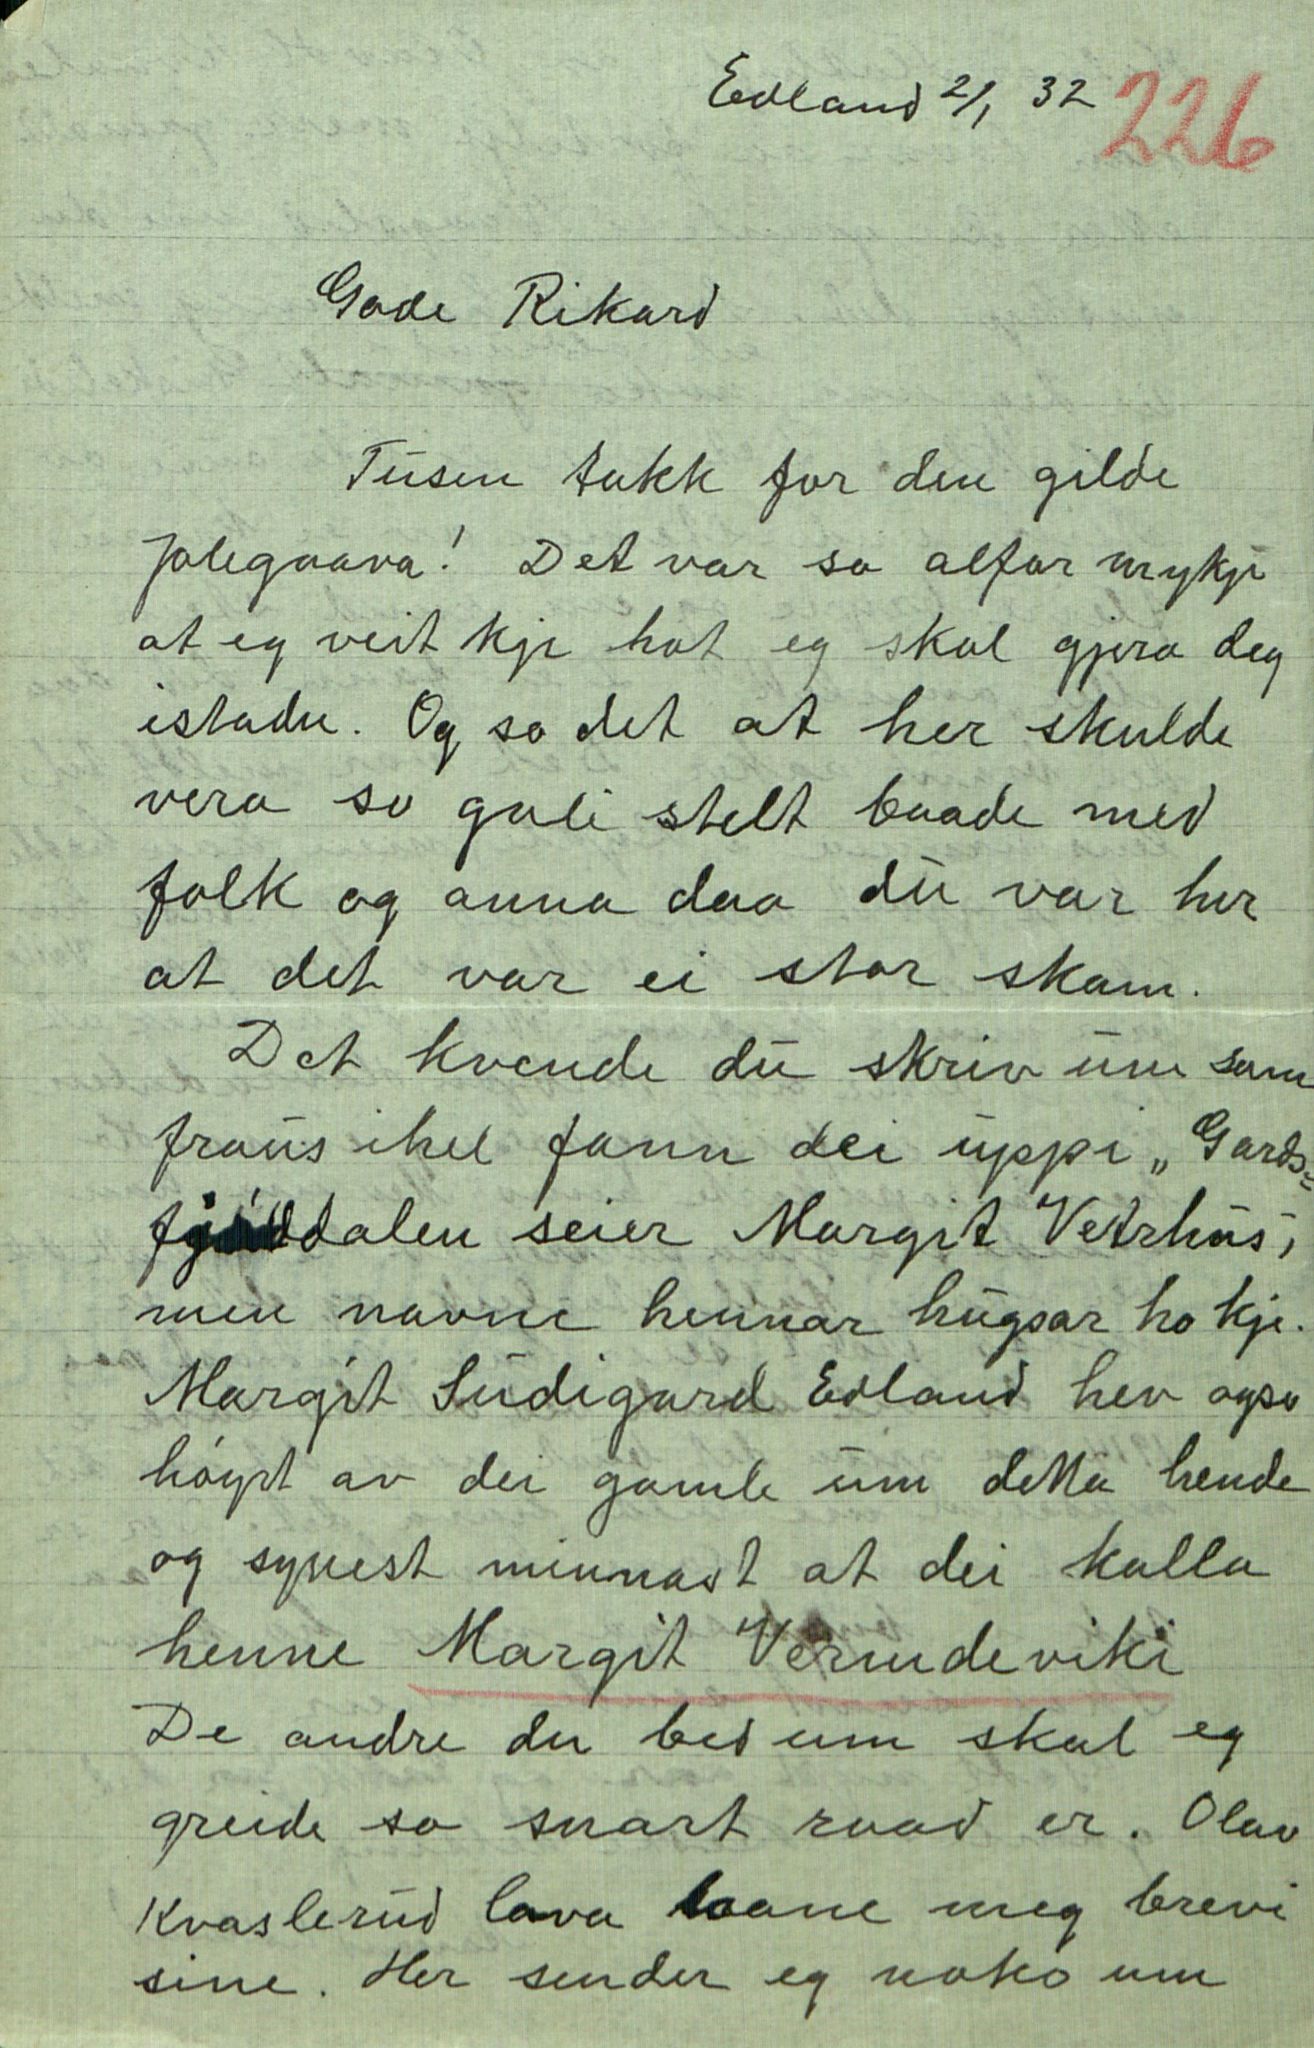 Edland 2/1 32
226
Gode Rikard
Tusen takk for den gilde
jolegaava! Det var so alfor mykje
at eg veit kje hot eg skal gjera deg
istadn. Og so det at her skulde
vera so gali stelt baade med
folk og anna daa du var her
at det var ei stor skam.
Det kvende du skriv um som
fraus ihel fann dei uppi „Gards=
fjøddalen seier Margit Vetrhus,
men navne hennar hugsar ho kje.
Margit Sudigard Edland hev ogso
høyrt av dei gamle um detta hende
og synest minnast at dei kalla
henne Margit Vermdeviki
De andre du bed um skal eg
greide so snart raad er. Olav
Kvaslerud lova laane meg brevi
sine. Her sender eg noko um